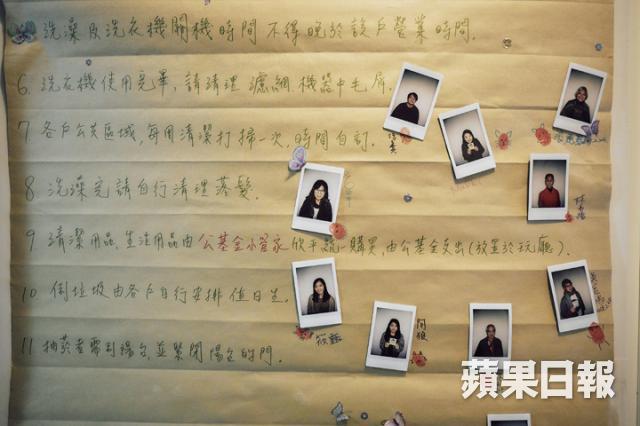 洗澡及洗衣機開機時間不得晚於該戶營業時間.
6. 洗衣機使用完畢, 請清理濾網機器中毛屑.
7 各戶公共區域, 每周清潔打掃一次, 時間自訂.
8. 洗澡完請自行清理落髮.
9 清潔用品、生活用品由公基金小管家欣平統一購買, 由公基金支出(放置於玩廳).
10. 倒垃圾由各戶自行安排值日生.
11 抽菸者需到陽台, 並緊閉陽台的門.
蘋果日報